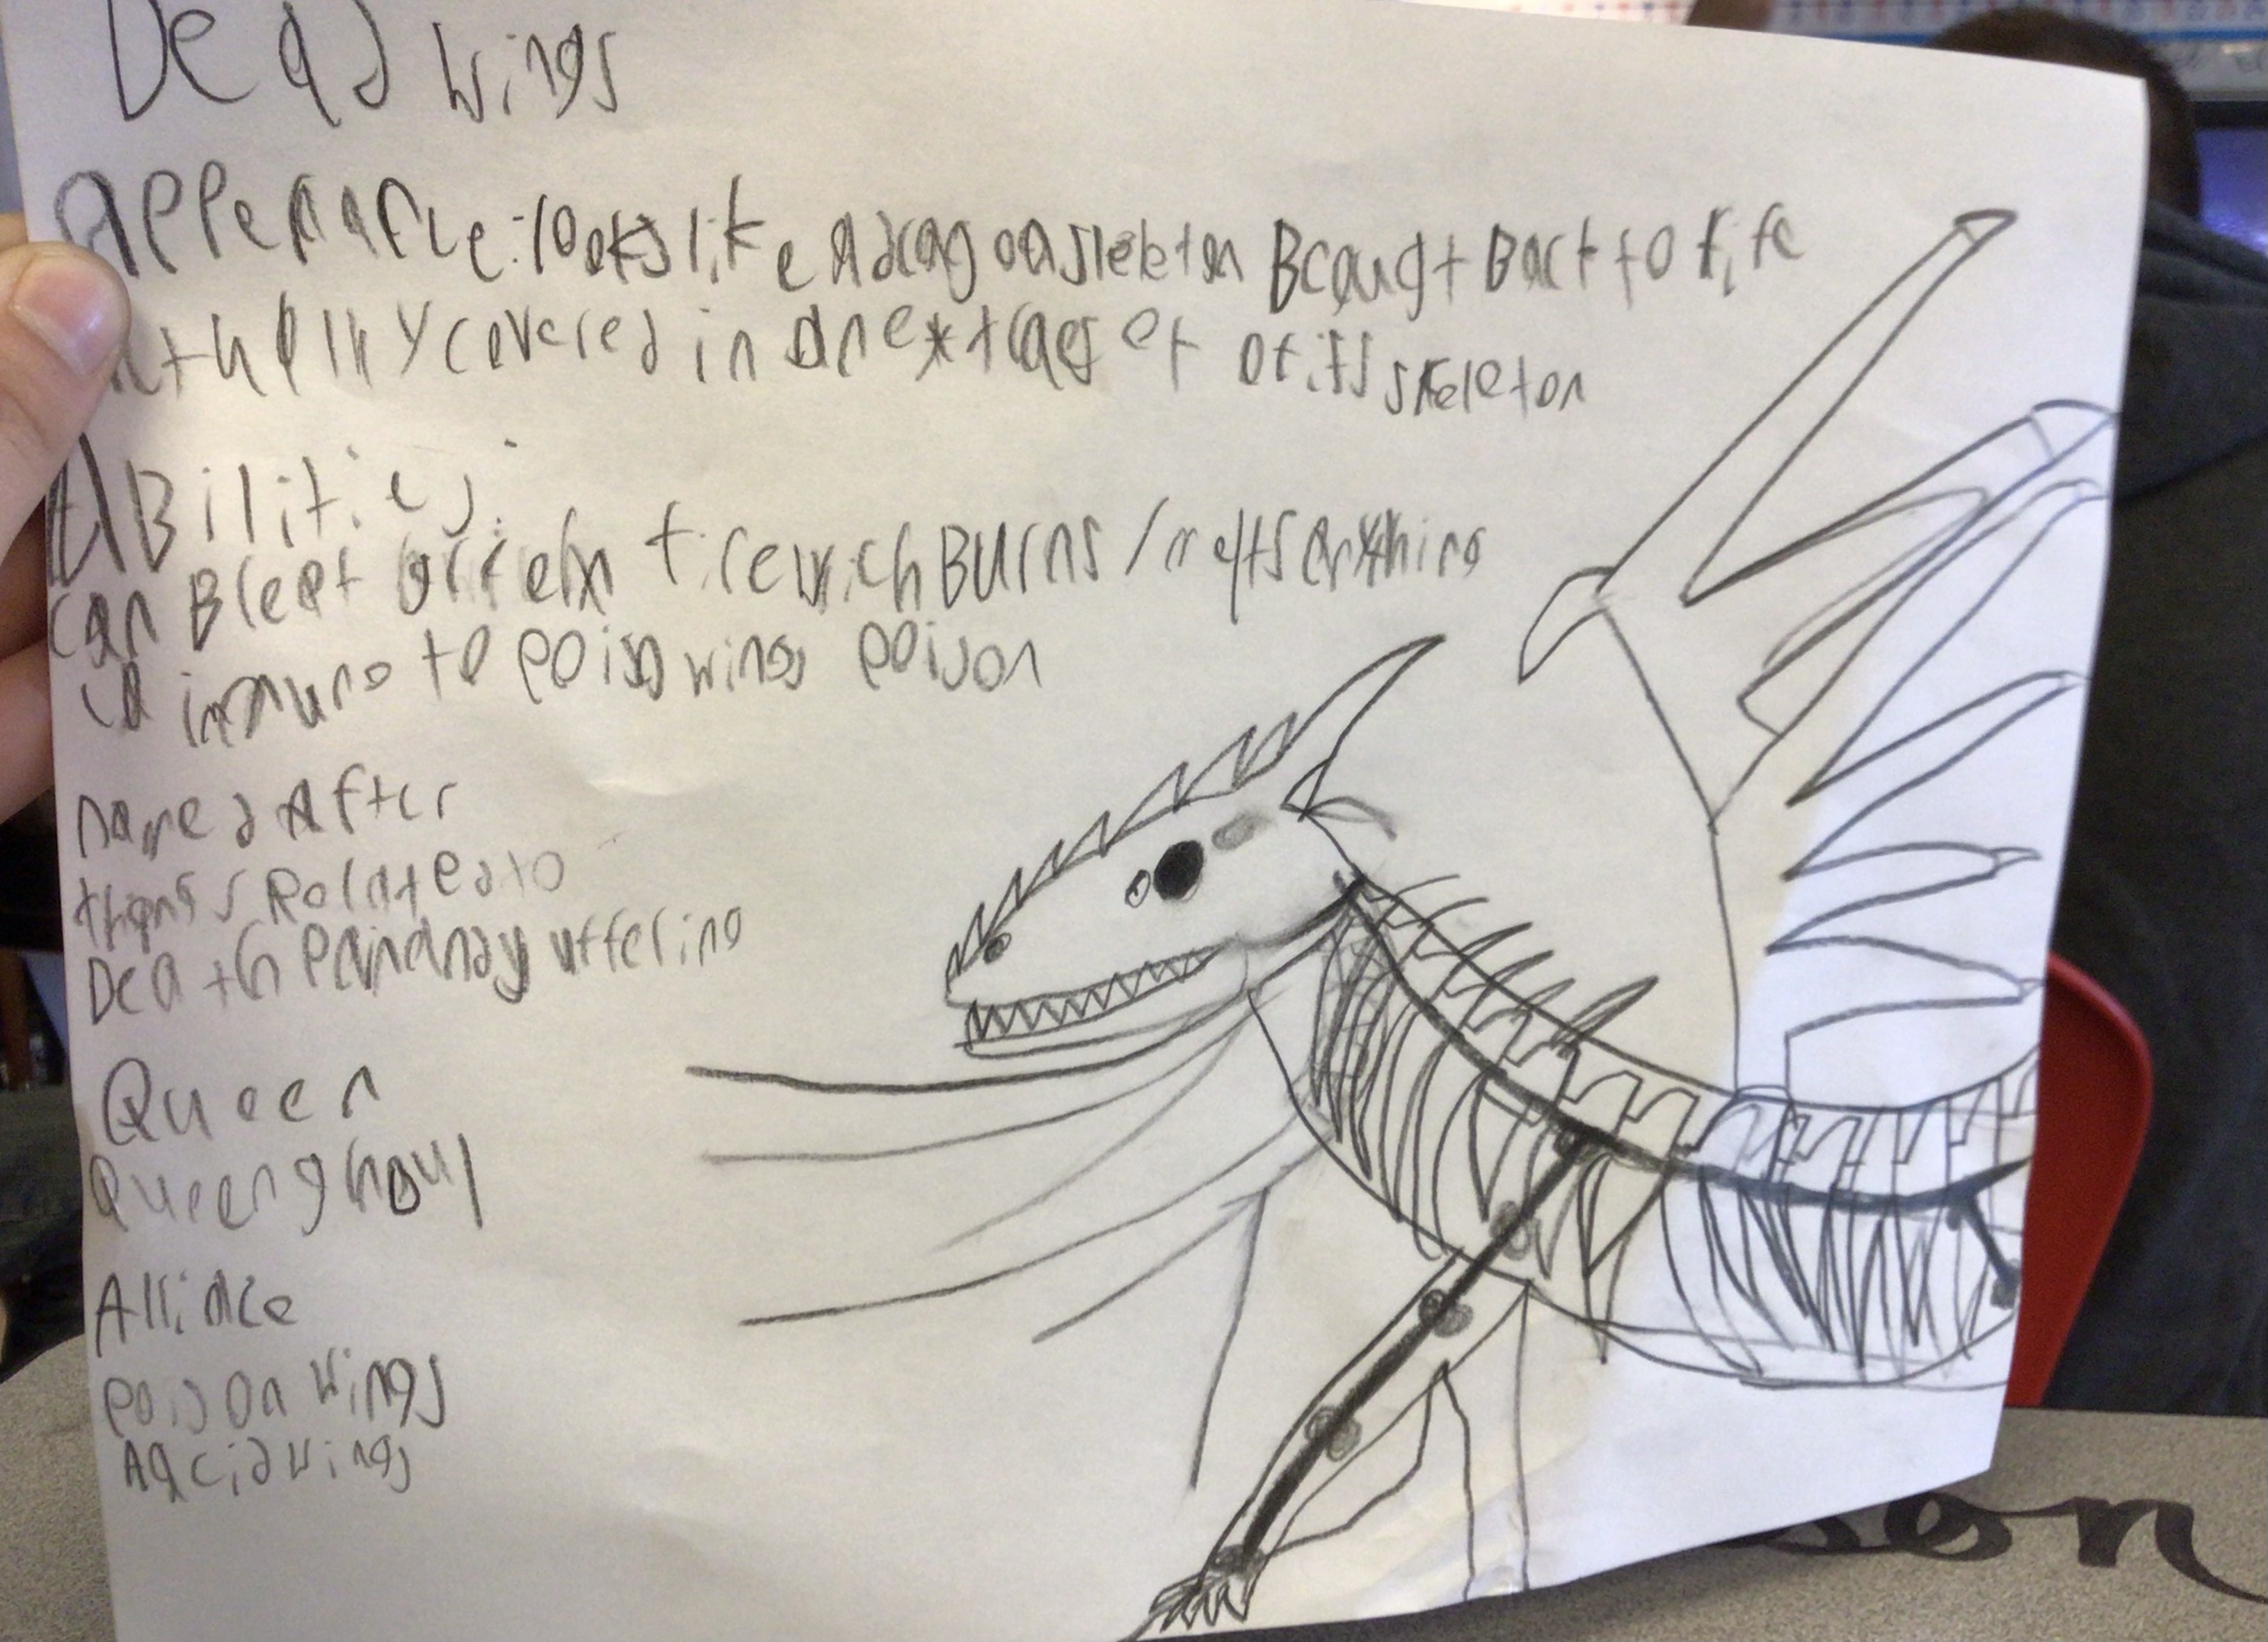 Dead wings
APPeRance: looks like a dragon skeleton Brougt Back to life
thully covered in an extra set of its skeleton
ABilities:
can Bleat green fire wich Burns / melts anything
is immune to poison wings poison
named After
things Related to
Death Pain and suffering
Queen
Queen ghoul
Alliace
poison wings
Aacid wings